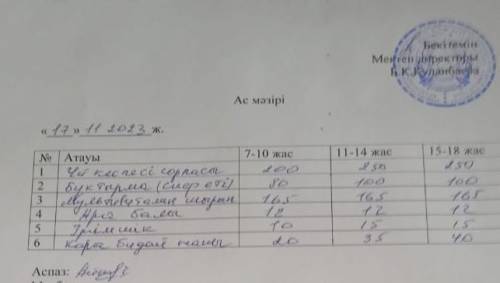 Бекітемін
Мектеп директоры
Б.К.Құланбаева
Ас мәзірі
« 17 » 11 2023 ж.
№ Атауы 7-10 жас 11-14 жас 15-18 жас
1 Үй кеспесі сорпасы 200 250 250
2 Бұқтырма (сиыр еті) 80 100 100
3 Мультивитамин шырын 165 165 165
4 Ара балы 12 12 12
5 Ірімшік 10 15 15
6 Қара бидай наны 20 35 40
Аспаз: